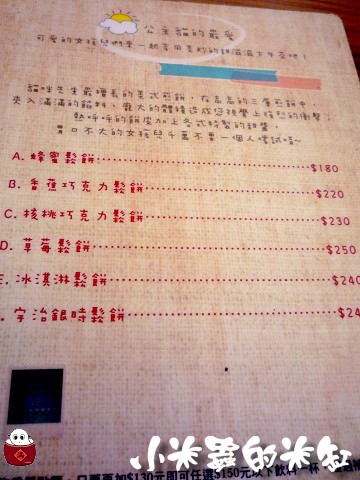 公主貓的最愛
可愛的女孩兒們來一起享用美妙的甜滋滋下午茶吧！
貓咪先生最擅長的美式煎餅，在高高的三層煎餅中，
夾入滿滿的餡料，龐大的體積造成您視覺上強烈的衝擊，
熱呼呼的餅皮加上各式特製的甜醬，
胃口不大的女孩兒千萬不要一個人嚐試唷~
A. 蜂蜜鬆餅 $180
B. 香蕉巧克力鬆餅 $220
C. 核桃巧克力鬆餅 $230
D. 草莓鬆餅 $250
E. 冰淇淋鬆餅 $240
宇治銀時鬆餅 $24
只要再加$130元即可任選$150元以下飲料一杯
小米蟲的米缸